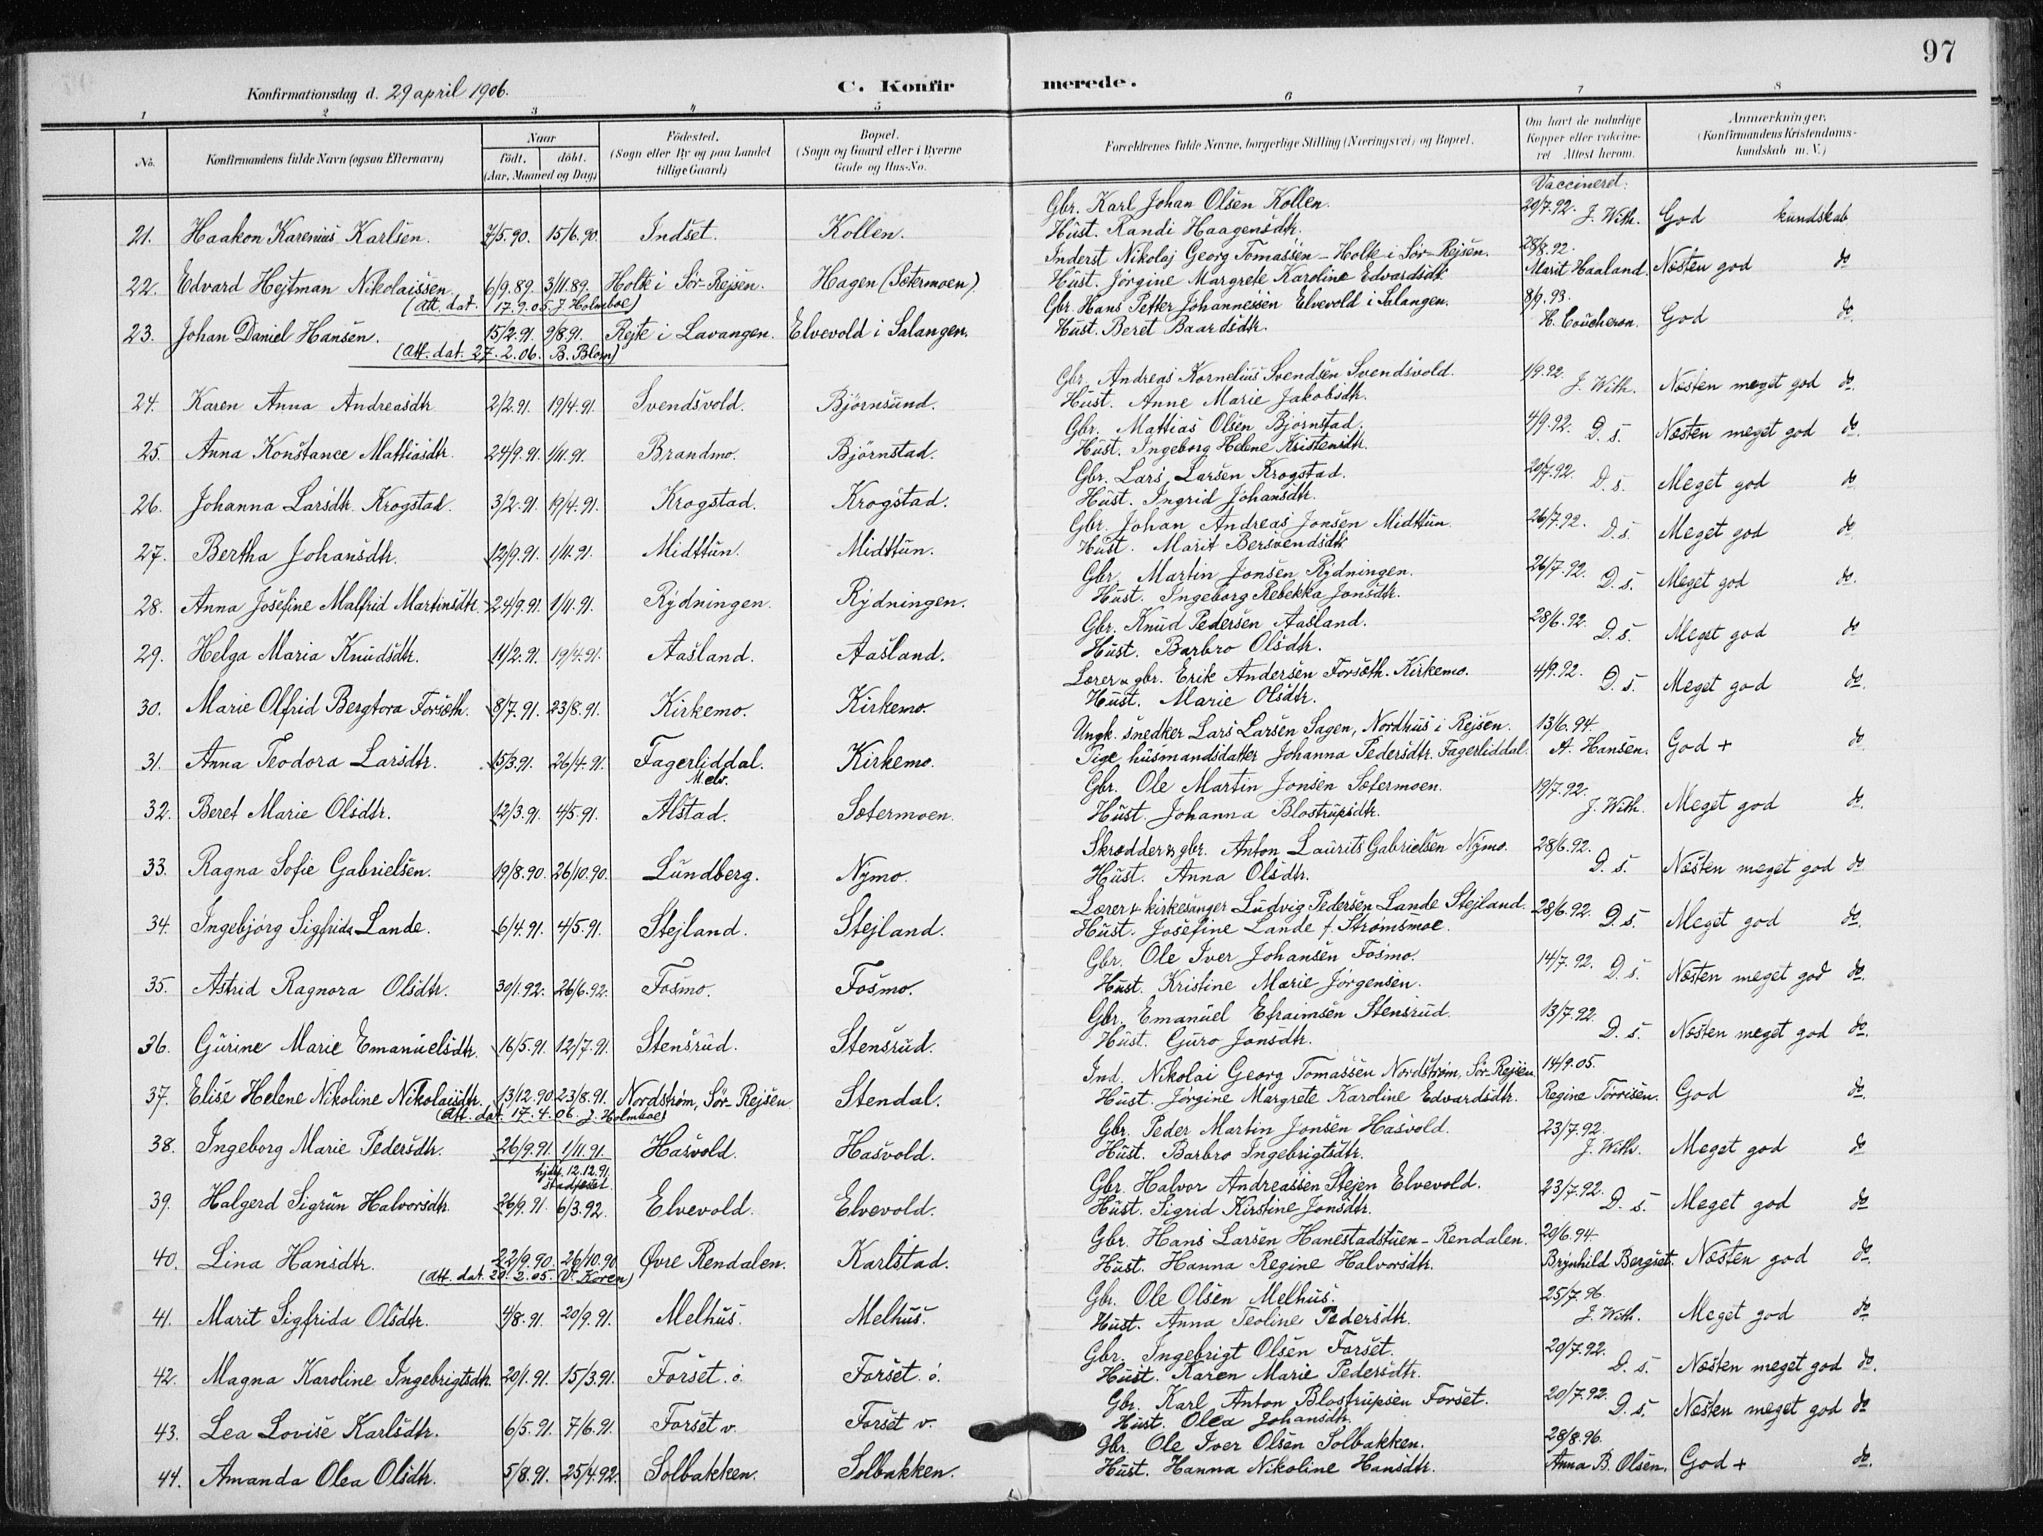 97
Konfirmationsdag d. 29 april 1906.
C. Konfirmerede.
1 2 3 4 5 6 7 8
No. Konfirmandens fulde Navn (ogsaa Efternavn) Naar født, døbt. (Aar, Maaned og Dag) Fødested. (Sogn eller By og paa Landet tillige Gaard) Bopæl. (Sogn og Gaard eller i Byerne Gade og Hus-No. Forældrenes fulde Navne, borgerlige Stilling (Næringsvei) og Bopæl. Om havt de naturlige Kopper eller vaccineret. Attest herom. Anmærkninger. (Konfirmandens Kristendomskundskab m. V.)
Vaccineret:
21. Haakon Karenius Karlsen. 7/5.90. 15/6.90. Indset. Kollen. Gbr. Karl Johan Olsen Kollen. 20/7.92. J. With. God kundskab
Hust. Randi Haagensdtr.
22. Edvard Hejtman Nikolaissen. 6/9.89. 3/11.89. Holte i Sør-Rejsen. Hagen (Sætermoen) Inderst Nikolaj Georg Tomassen - Holte i Sør-Rejsen. 28/8.92. Marit Haaland. Næsten god do
(Att. dat. 17.9.05. J. Holmboe) Hust. Jørgine Margrete Karoline Edvardsdtr.
23. Johan Daniel Hansen. 15/2.91. 9/8.91. Rejte i Lavangen. Elvevold i Salangen. Gbr. Hans Petter Johannessen Elvevold i Salangen. 8/9.93. H. Coucheron. God do.
(Att. dat. 27.2.06. B. Blom) Hust. Beret Baardsdtr.
24. Karen Anna Andreasdtr. 2/2.91. 19/4.91. Svendsvold. Bjørnsund. Gbr. Andreas Kornelius Svendsen Svendsvold. 1/9.92. J. With. Næsten meget god do.
Hust. Anne Marie Jakobsdtr.
25. Anna Konstance Mattiasdtr. 24/9.91. 1/11.91. Brandmo. Bjørnstad. Gbr. Mattias Olsen Bjørnstad. 4/9.92. D. s. Næsten meget god do.
Hust. Ingeborg Helene Kristensdtr.
26. Johanna Larsdtr. Krogstad. 3/2.91. 19/4.91. Krogstad. Krogstad. Gbr. Lars Larsen Krogstad. 20/7.92. D. s. Meget god do
Hust. Ingrid Johansdtr.
27. Bertha Johansdtr. 12/9.91. 1/11.91. Midttun. Midttun. Gbr. Johan Andreas Jonsen Midttun. 26/7.92. D. s. Meget god do.
Hust. Marit Bersvendsdtr.
28. Anna Josefine Malfrid Martinsdtr. 24/9.91. 1/11.91. Rydningen. Rydningen. Gbr. Martin Jonsen Rydningen. 26/7.92. D. s. Meget god do.
Hust. Ingeborg Rebekka Jonsdtr.
29. Helga Maria Knudsdtr. 11/2.91. 19/4.91. Aasland. Aasland. Gbr. Knud Pedersen Aasland. 28/6.92. D. s. Meget god do
Hust. Barbro Olsdtr.
30. Marie Olfrid Bergtora Forseth. 8/7.91. 23/8.91. Kirkemo. Kirkemo. Lærer & gbr. Erik Andersen Forseth. Kirkemo. 4/9.92. D. s. Meget god do.
Hust. Marie Olsdtr.
31. Anna Teodora Larsdtr. 15/3.91. 26/4.91. Fagerliddal. Kirkemo. Ungk. snedker Lars Larsen Sagen, Nordhus i Rejsen. 13/6.94. A. Hansen. God + do.
Pige husmandsdatter Johanna Pedersdtr. Fagerliddal.
32. Beret Marie Olsdtr. 12/3.91. 4/5.91. Alstad. Sætermoen. Gbr. Ole Martin Jonsen Sætermoen. 19/7.92. J. With. Meget god do.
Hust. Johanna Blostrupsdtr.
33. Ragna Sofie Gabrielsen. 19/8.90. 26/10.90. Lundberg. Nymo. Skrædder & gbr. Anton Laurits Gabrielsen Nymo. 28/6.92. D. s. Næsten meget god do
Hust. Anna Olsdtr.
34. Ingebjørg Sigfrida Lande. 6/4.91. 4/5.91. Stejland. Stejland. Lærer & kirkesanger Ludvig Pedersen Lande Stejland. 28/6.92. D. s. Meget god do.
Hust. Josefine Lande f. Strømsmoe.
35. Astrid Ragnora Olsdtr. 30/1.92. 26/6.92. Fosmo. Fosmo. Gbr. Ole Iver Johansen Fosmo. 14/7.92. D. s. Næsten meget god do.
Hust. Kristine Marie Jørgensen.
36. Gurine Marie Emanuelsdtr. 16/5.91. 12/7.91. Stensrud. Stensrud. Gbr. Emanuel Efraimsen Stensrud. 13/7.92. D. s. Næsten meget god do.
Hust. Guro Jonsdtr.
37. Elise Helene Nikoline Nikolaisdtr. 13/12.90. 23/8.91. Nordstrøm, Sør-Rejsen. Stendal. Ind. Nikolai Georg Tomassen Nordstrøm, Sør-Rejsen. 14/9.05. Regine Torrisen. God do.
(Att. dat. 17.4.06. J. Holmboe) Hust. Jørgine Margrete Karoline Edvardsdtr.
38. Ingeborg Marie Pedersdtr. 26/9.91. 1/11.91. Hasvold. Hasvold. Gbr. Peder Martin Jonsen Hasvold. 23/7.92. J. With. Meget god do
Hust. Barbro Ingebrigtsdtr.
hjdb. 12.12.91. stadfæstet.
39. Halgerd Sigrun Halvorsdtr. 26/9.91. 6/3.92. Elvevold. Elvevold. Gbr. Halvor Andreassen Stejen Elvevold. 23/7.92. D. s. Meget god do
Hust. Sigrid Kirstine Jonsdtr.
40. Lina Hansdtr. 22/9.90. 26/10.90. Øvre Rendalen. Karlstad. Gbr. Hans Larsen Hanestadstuen - Rendalen. 20/6.94. Brynhild Bergset. Næsten god do.
(Att. dat. 20.2.05. V. Koren) Hust. Hanna Regine Halvorsdtr.
41. Marit Sigfrida Olsdtr. 4/8.91. 20/9.91. Melhus. Melhus. Gbr. Ole Olsen Melhus. 25/7.96. J. With. Meget god do
Hust. Anna Teoline Pedersdtr.
42. Magna Karoline Ingebrigtsdtr. 20/1.91. 15/3.91. Forset. ö. Forset. ö. Gbr. Ingebrigt Olsen Forset. 20/7.92. D. s. Næsten meget god do.
Hust. Karen Marie Pedersdtr.
43. Lea Lovise Karlsdtr. 6/5.91. 7/6.91. Forset v. Forset v. Gbr. Karl Anton Blostrupsen Forset. 20/7.92. D. s. Næsten meget god do
Hust. Olea Johansdtr.
44. Amanda Olea Olsdtr. 5/8.91. 25/4.92. Solbakken. Solbakken. Gbr. Ole Iver Olsen Solbakken. 28/8.96. Anna B. Olsen. God + do.
Hust. Hanna Nikoline Hansdtr.